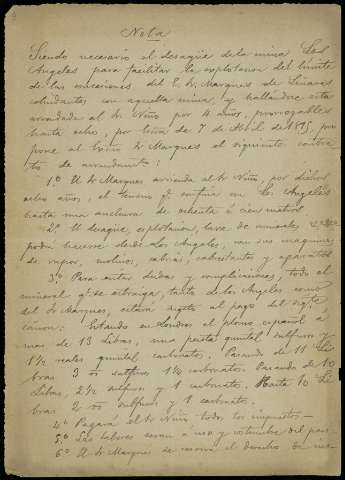 Nota
Siendo necesario el desagüe de la mina Los
Angeles para facilitar la explotacion del límite
de las concesiones del E. Sr. Marques de Linares
colindantes con aquella mina, y hallandose esta
arrendada al Sr. Niño por 4 años, prorrogables
hasta ocho, por Escra. de 7 de Abril de 1895, pro
pone al Exmo. Sr. Marques el siguiente contra
to de arrendamiento:
1.º El Sr. Marques arrienda al Sr. Niño, por dichos
ocho años, el terreno q. confina con Los Angeles
hasta una anchura de ochenta ó cien metros
2.º El desagüe, explotacion, lave de minerales
podrá hacerse desde Los Angeles, con sus maquinas
de vapor, molinos, cabrias, cabrestantes y aparatos
3.º Para evitar dudas y complicaciones, todo el
mineral q. se extraiga, tanto de Los Angeles como
del Sr. Marques, estará sugeto al pago del sigte.
cánon: Estando en Londres el plomo español á
mas de 13 Libras, una peseta quintal sulfuros y
1½ reales quintal carbonatos. Pasando de 11 Li
bras 3 rs sulfuros 1½ carbonatos. Pasando de 10
Libras, 2½ sulfuros y 1 carbonatos. Hasta 10 Li
bras 2 rs sulfuros y 1 carbonatos.
4.º Pagará el Sr. Niño todos los impuestos.—
5.º Las labores seran á uso y costumbre del pais.
6.º El Sr. Marques se reserva el derecho de ins-